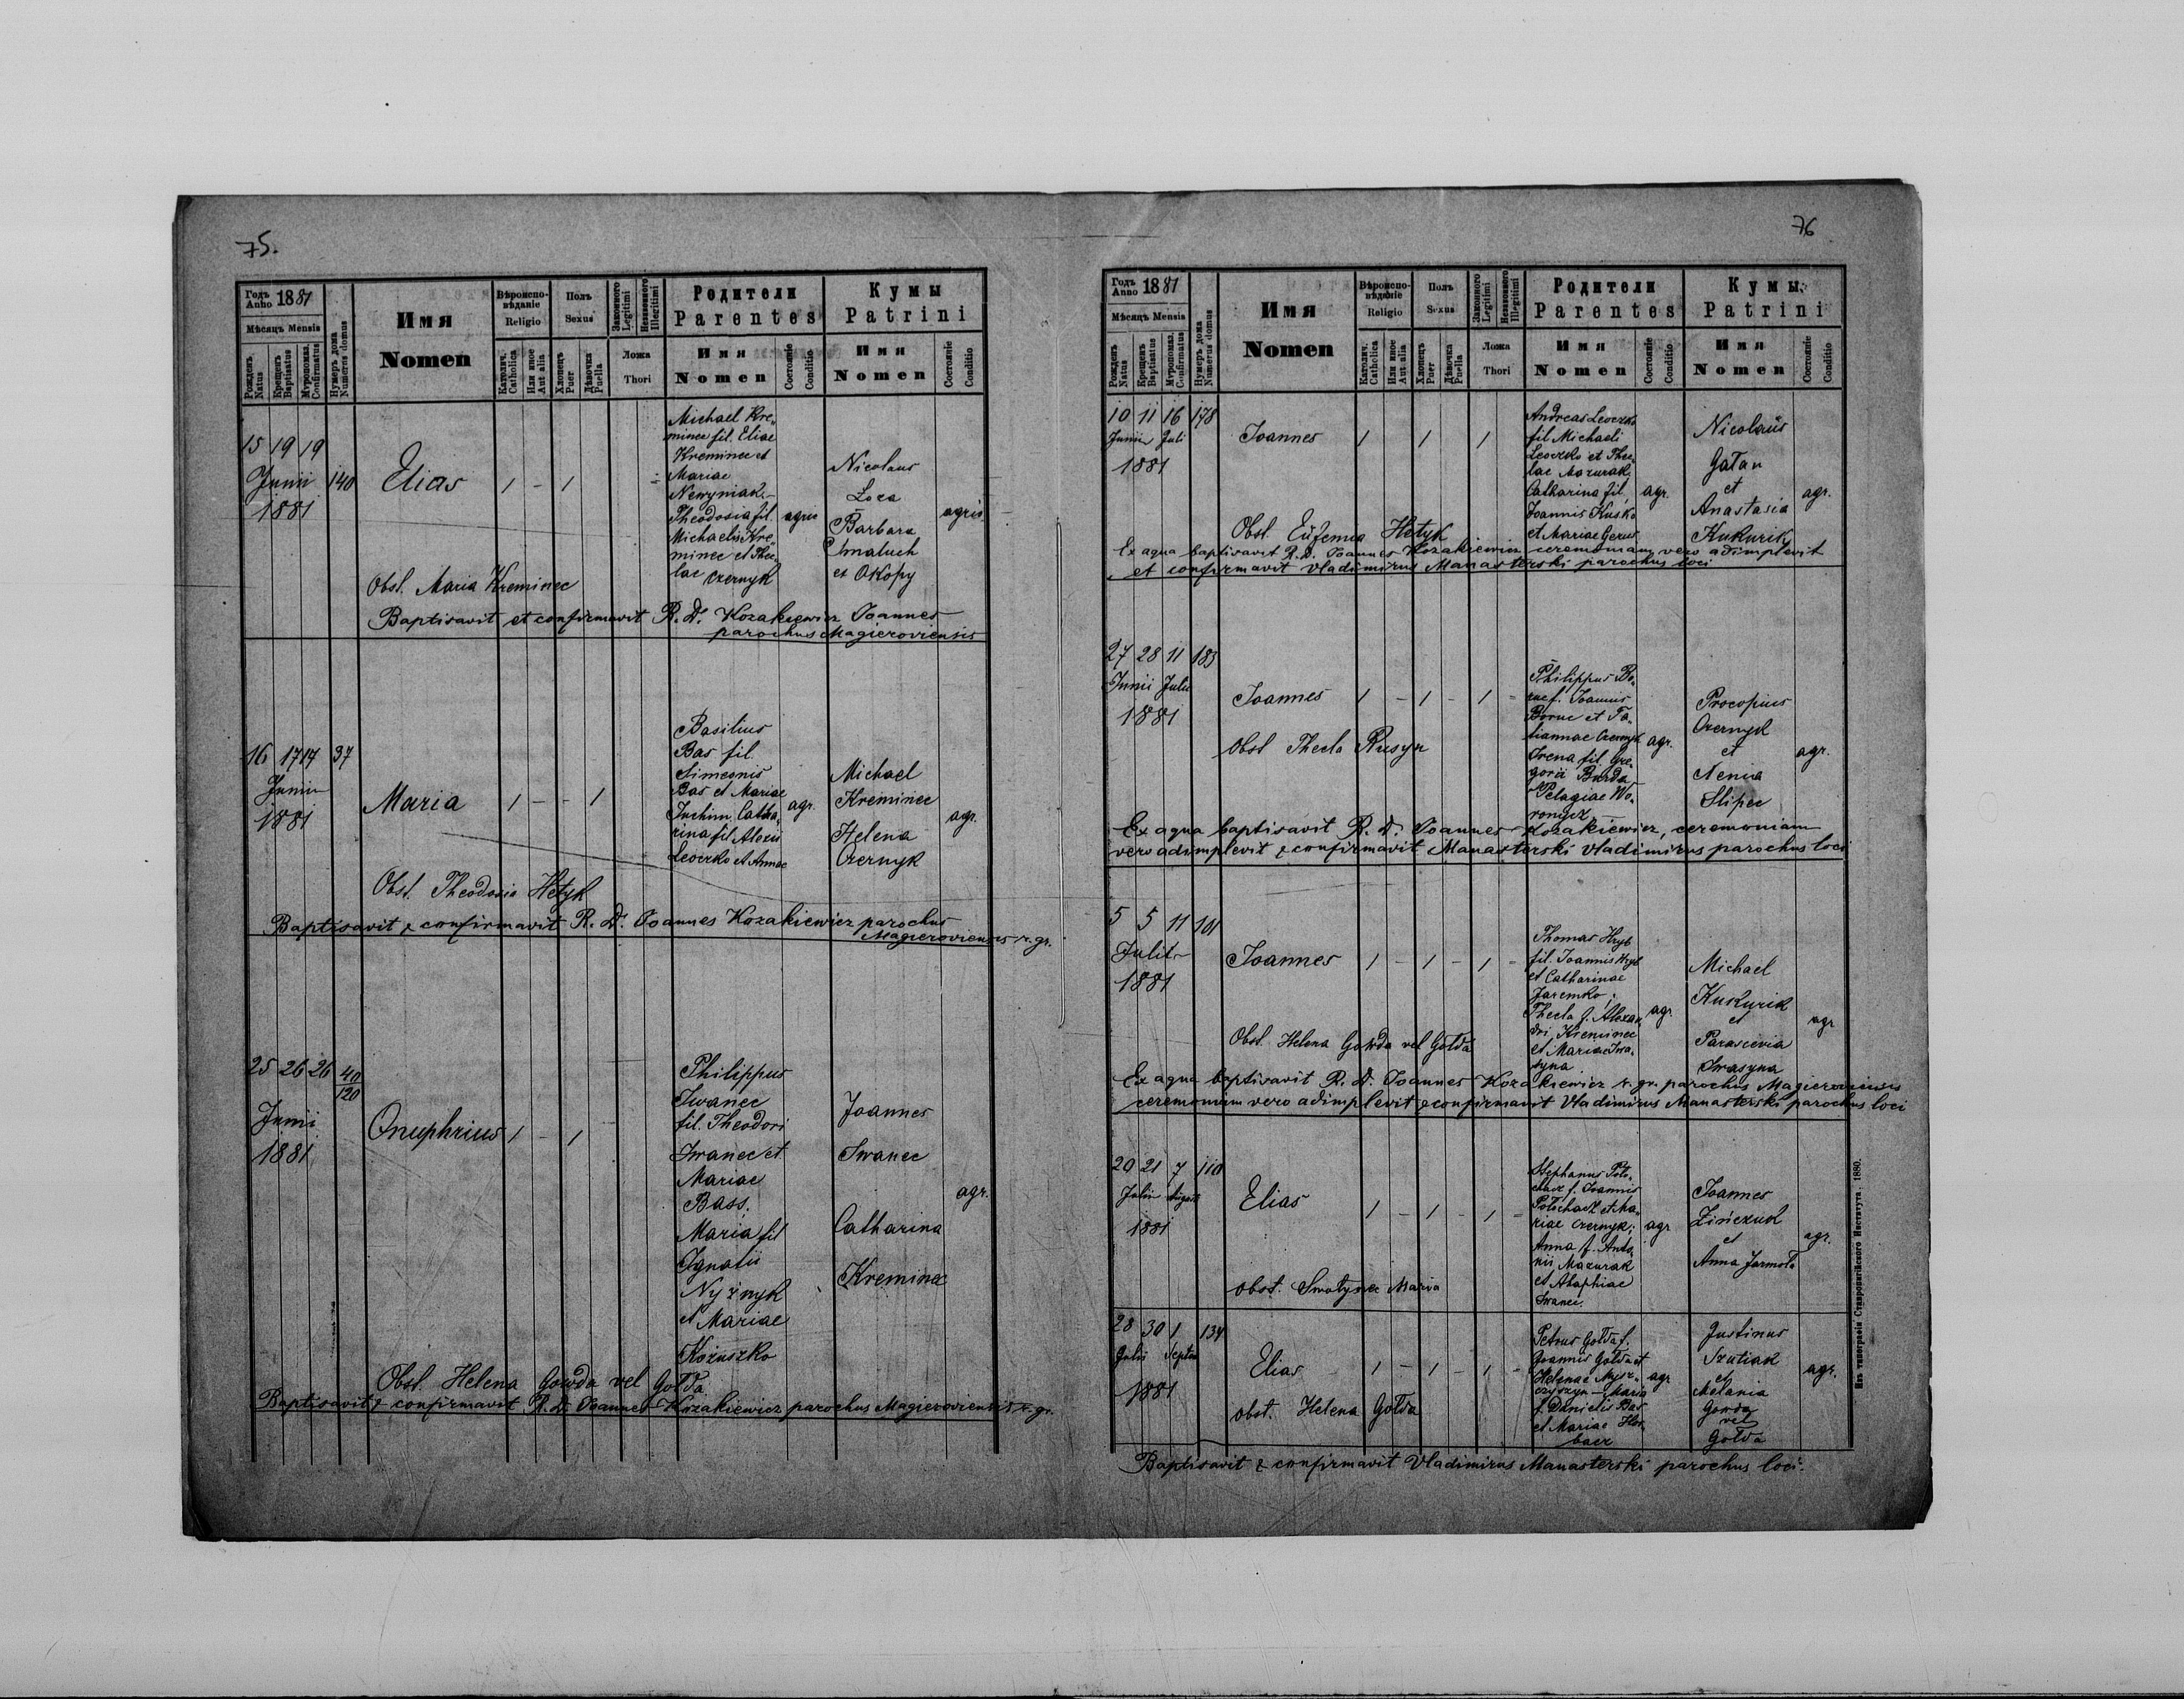 75.
Годъ Anno 1881
Мѣсяцъ Mensis
Рожденъ Natus
Крещенъ Baptisatus
Муропомаз. Confirmatus
Нумеръ дома Numerus domus
Имя
Nomen
Вѣроиспо-
вѣданіе
Religio
Католич. Catholica
Или иное Aut alia
Полъ
Sexus
Хлопецъ Puer
Дѣвочка Puella
Законного Legitimi
Незаконного Illegitimi
Ложа
Thori
Родители
Parentes
Имя
Nomen
Состояніе Conditio
Кумы
Patrini
Имя
Nomen
Состояніе Conditio
15 19 19
Junii 140
1881
Elias 1 - 1
Michael Kre„
minec fil. Eliae
Kreminec et
Mariae
Newyniak.-
Theodosia fil.
Michaelis Kre„
minec et Thec„
lae Czernyk
agric
Nicolaus
Loza
Barbara
Chnatuch
et Okopy
agric
Obst. Maria Kreminec
Baptisavit et confirmavit R. D. Kozakiewicz Joannes
parochus Magieroviensis
16 17 17 37
Junii
1881
Maria 1 - - 1
Basilius
Bas fil.
Simeonis
Bas et Mariae
Juchim, Catha„
rina fil. Alexii
Leoczko et Annae
agr.
Michael
Kreminec
Helena
Czernyk
agr.
Obst. Theodosia Hetyk
Baptisavit & confirmavit R. D. Joannes Kozakiewicz parochus
Magieroviensis r. gr.
25 26 26 40/120
Junii
1881
Onuphrius 1 - 1
Philippus
Iwanec
fil. Theodori
Iwanec et
Mariae
Bass.
Maria fil
Ignatii
Nyżnyk
et Mariae
Kożuszko
Joannes
Iwanec
Catharina
Kreminec
agr.
Obst. Helena Gowda vel Gołda
Baptisavit & confirmavit R. D. Joannes Kozakiewicz parochus Magieroviensis r. gr.
76
Годъ Anno 1881
Мѣсяцъ Mensis
Рожденъ Natus
Крещенъ Baptisatus
Муропомаз. Confirmatus
Нумеръ дома Numerus domus
Имя
Nomen
Вѣроиспо-
вѣданіе
Religio
Католич. Catholica
Или иное Aut alia
Полъ
Sexus
Хлопецъ Puer
Дѣвочка Puella
Законного Legitimi
Незаконного Illegitimi
Ложа
Thori
Родители
Parentes
Имя
Nomen
Состояніе Conditio
Кумы
Patrini
Имя
Nomen
Состояніе Conditio
10 11 16 178
Junii Juli
1881
Joannes 1 1 1
Andreas Leoczko
fil Michaeli
Leoczko et Thec„
lae Mazurak,
Catharina fil,
Joannis Kusko
et Mariae Gerus
agr.
Nicolaus
Gałan
et
Anastasia
Kukurik
agr.
Obst. Eufemia Hetyk
Ex aqua baptisavit R. D. Joannes Kozakiewicz ceremoniam vero adimplevit
et confirmavit Vladimirus Manasterski parochus loci
27 28 11 183
Junii Julii
1881
Joannes 1 - 1 - 1
Philippus Bo„
ruc f. Joannis
Boruc et Ta„
tiannae Czernyk
Irena fil. Gre„
gorii Burda
Pelagiae Wo„
ronycz
agr.
Procopius
Czernyk
et
Xenia
Slipec
agr.
Obst Thecla Rusyn
Ex aqua baptisavit R. D. Joannes Kozakiewicz, ceremoniam
vero adimplevit & confirmavit Manasterski Vladimirus parochus loci
5 5 11 101
Julii
1881
Joannes 1 - 1 - 1
Thomas Hryb
fil. Joannis Hryb
et Catharinae
Jaremko;
Thecla f. Alexan„
dri Kreminec
et Mariae Iwa„
syna
agr.
Michael
Kukurik
et
Parascevia
Iwasyna
agr
Obst. Helena Gowda vel Gołda
Ex aqua baptisavit R. D. Joannes Kozakiewicz r. gr. parochus Magieroviensis
ceremoniam vero adimplevit & confirmavit Vladimirus Manasterski parochus loci
20 21 7 110
Julii Augusti
1881
Elias 1 - 1 - 1
Stephanus Poto„
chacz f. Joannis
Potochacz et Ma„
riae Czernyk;
Anna f. Anto„
nii Mazurak
et Ahaphiae
Iwanec.
agr
Joannes
Zińczuk
et
Anna Jarmoła
agr.
obst. Smotynec Maria
28 30 1 134
Julii Septem
1881
Elias 1 - 1 - 1
Petrus Gołda f.
Joannis Gołda et
Helenae Mysz„
czyszyn - Maria
f. Danielis Bas
et Mariae Hor„
bacz
agr
Justinus
Szutiak
et
Melania
Gowda
vel
Gołda
agr.
obst. Helena Gołda
Baptisavit & confirmavit Vladimirus Manasterski parochus loci.
Изъ типографіи Ставропигійского Института. 1880.